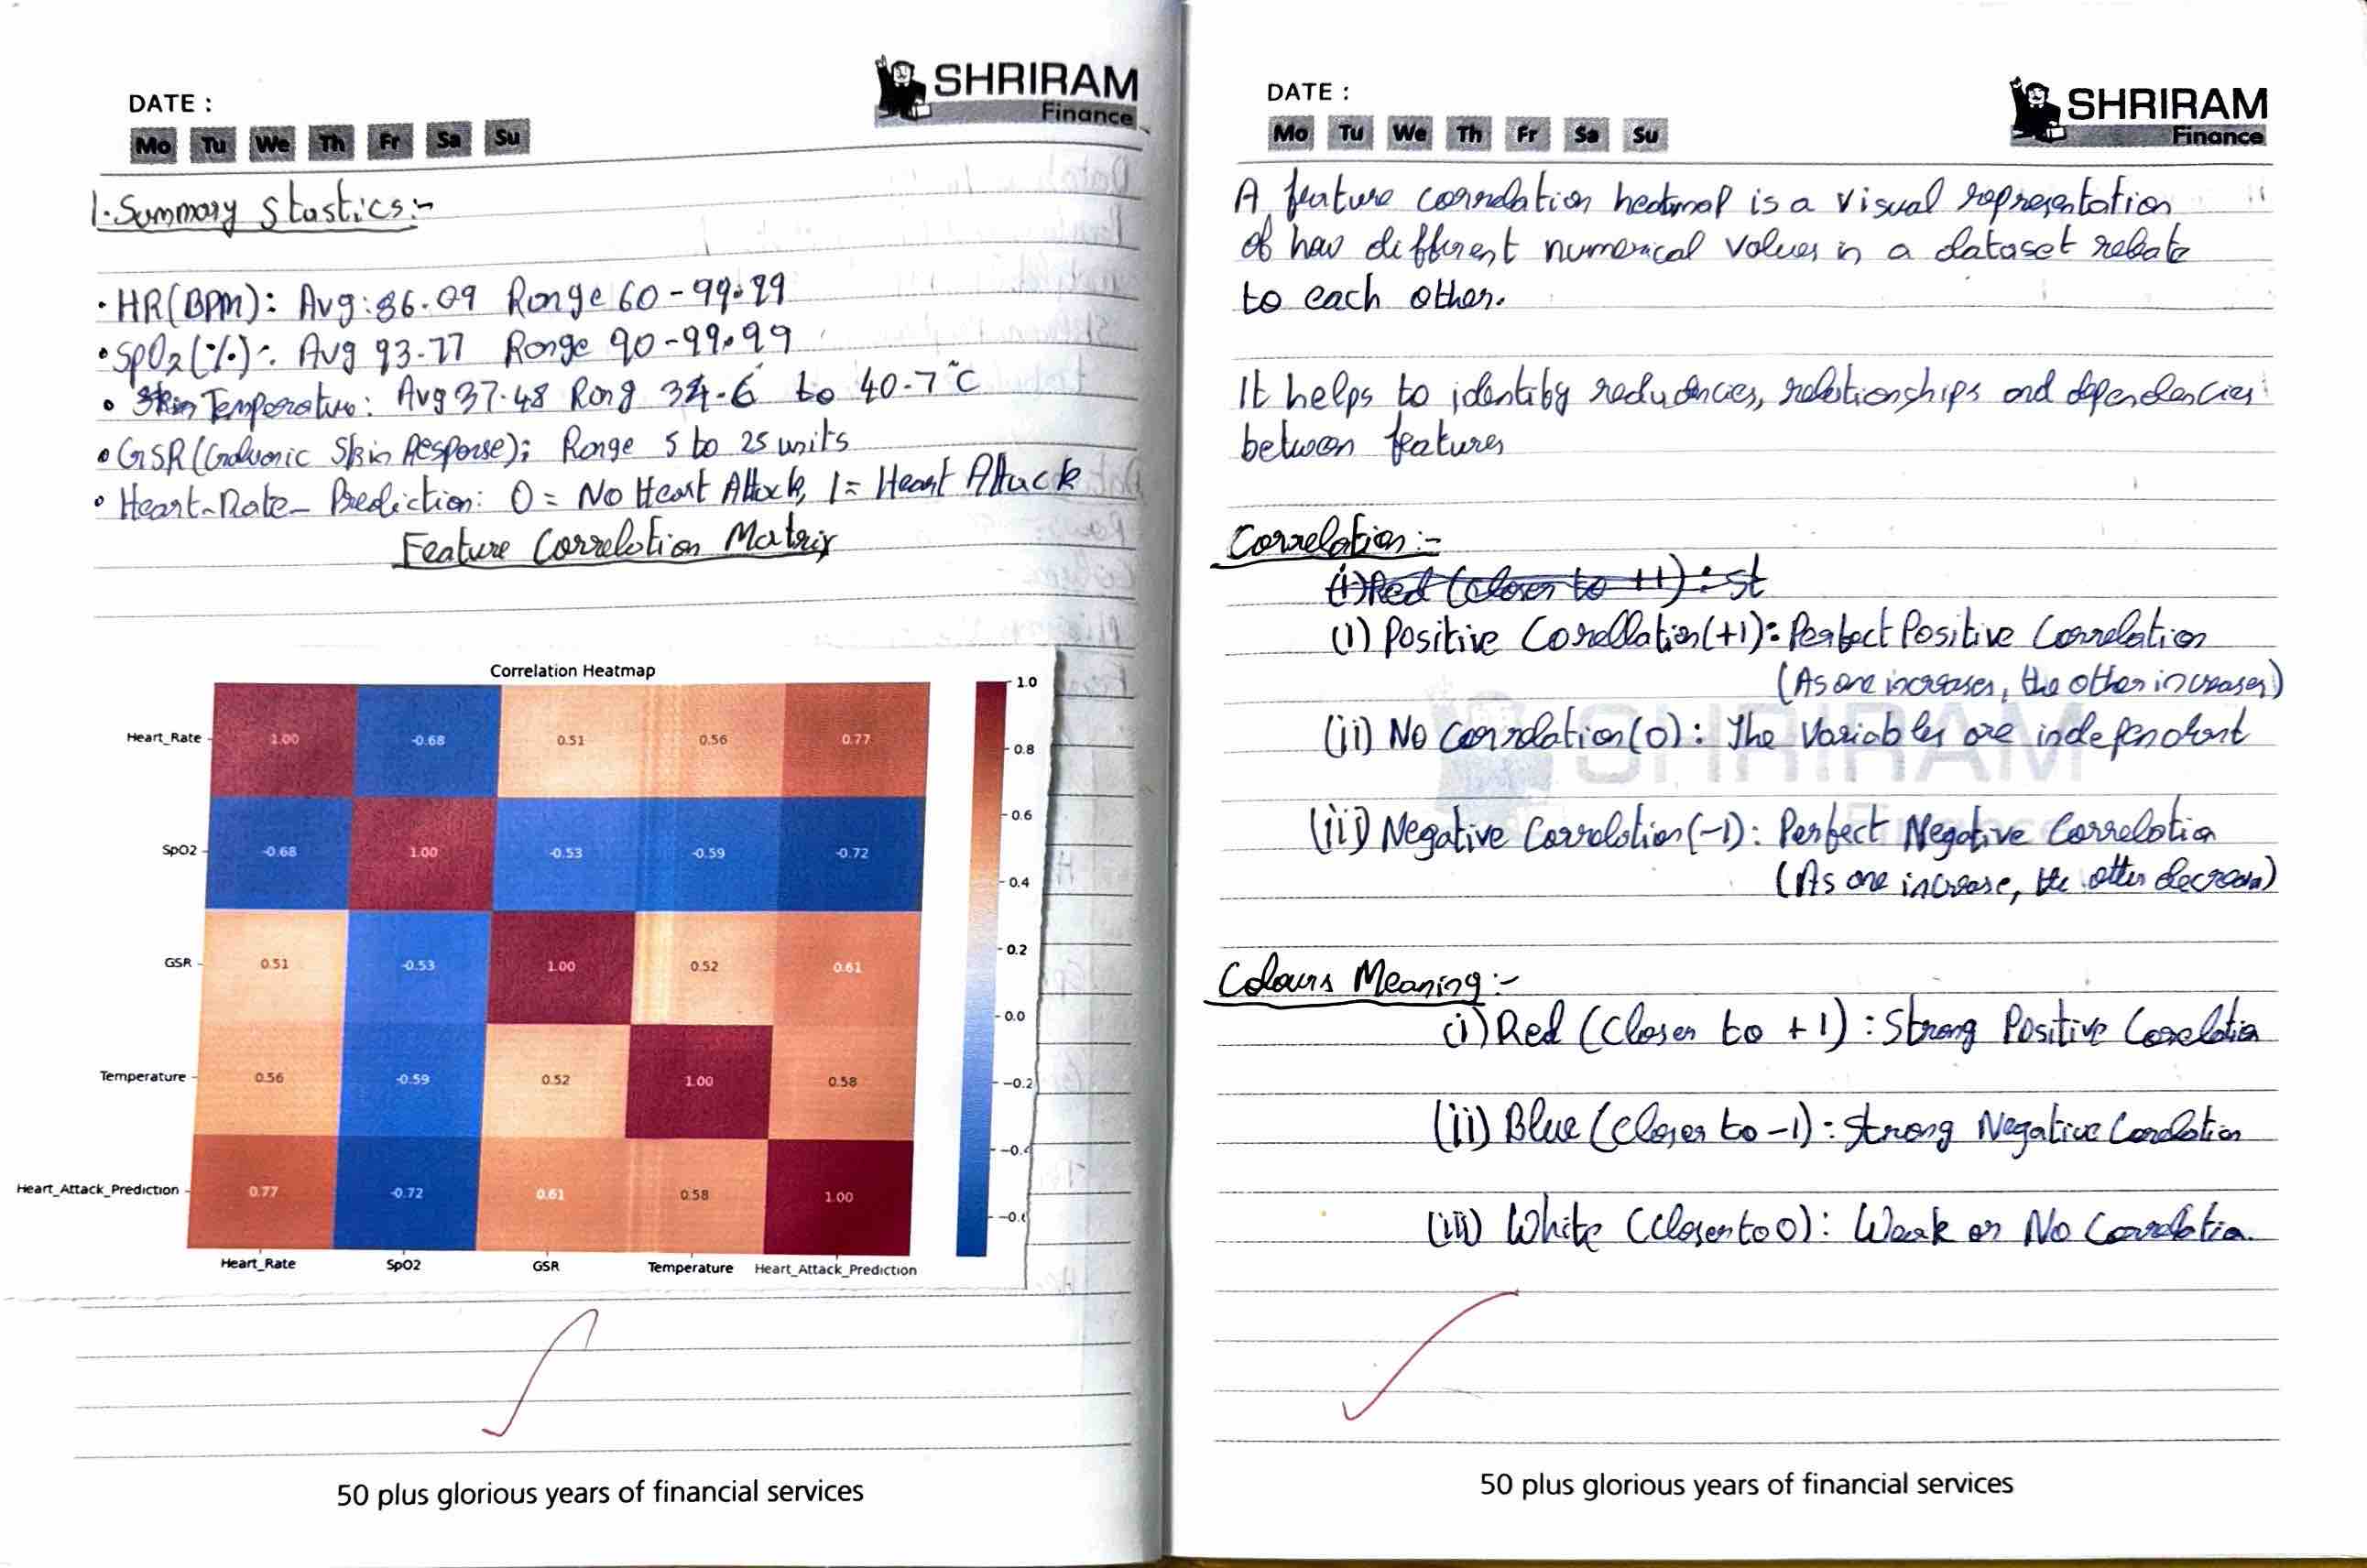 DATE :
SHRIRAM
Finance
Mo Tu We Th Fr Sa Su
1. Summary Stastics:-
• HR(BPM): Avg: 86.09 Range 60-99.99
• SpO2(%): Avg 93.77 Range 90-99.99
• Skin Temperature: Avg 37.48 Rang 34.6 to 40.7°C
• GSR(Galvanic Skin Response): Range 5 to 25 units
• Heart-Rate_ Prediction: 0 = No Heart Attack, 1 = Heart Attack
Feature Correlation Matrix
Correlation Heatmap
Heart_Rate 1.00 -0.68 0.51 0.56 0.77
SpO2 -0.68 1.00 -0.53 -0.59 -0.72
GSR 0.51 -0.53 1.00 0.52 0.61
Temperature 0.56 -0.59 0.52 1.00 0.58
Heart_Attack_Prediction 0.77 -0.72 0.61 0.58 1.00
Heart_Rate SpO2 GSR Temperature Heart_Attack_Prediction
1.0
0.8
0.6
0.4
0.2
0.0
-0.2
-0.4
50 plus glorious years of financial services
DATE :
SHRIRAM
Finance
Mo Tu We Th Fr Sa Su
A feature correlation heatmap is a visual representation
of how different numerical values in a dataset relate
to each other.
It helps to identify redudancies, relationships and dependencies
between features
Correlation:-
(i) Red (closer to +1): st
(i) Positive Corellation(+1): Perfect Positive Correlation
(As one increases, the other increases)
(ii) No Correlation(0): The Variables are independent
SHRIRAM
Finance
(iii) Negative Correlation(-1): Perfect Negative Correlation
(As one increase, the other decrease)
Colours Meaning:-
(i) Red (Closer to +1): Strong Positive Corelation
(ii) Blue (closer to -1): Strong Negative Corelation
(iii) White (closer to 0): Weak or No Correlation.
50 plus glorious years of financial services